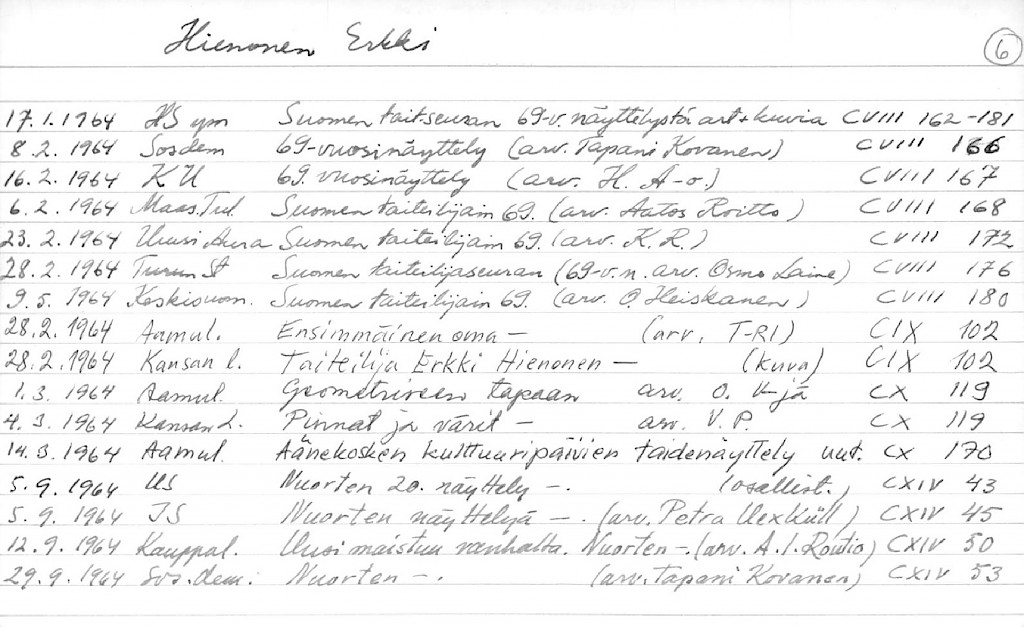 Hienonen Erkki 6
17.1.1964 HS ym Suomen tait.seuran 69-v. näyttelystä art+kuvia CVIII 162-181
8.2.1964 Sosdem 69-vuosinäyttely (arv. Tapani Kovanen) CVIII 166
16.2.1964 KU 69. vuosinäyttely (arv. H. A-o.) CVIII 167
6.2.1964 Maas.Tul. Suomen taiteilijain 69. (arv. Aatos Roitto) CVIII 168
23.2.1964 Uusi Aura Suomen taiteilijain 69. (arv. K.R.) CVIII 172
28.2.1964 Turun St Suomen taiteilijaseuran (69-v.n. arv. Osmo Laine) CVIII 176
9.5.1964 Keskisuom. Suomen taiteilijain 69. (arv. O. Heiskanen) CVIII 180
28.2.1964 Aamul. Ensimmäinen oma - (arv. T-RI) CIX 102
28.2.1964 Kansan l. Taiteilija Erkki Hienonen - (kuva) CIX 102
1.3.1964 Aamul. Geometriseen tapaan arv. O. V-jä CX 119
4.3.1964 Kansan L. Pinnat ja värit - arv. V.P. CX 119
14.3.1964 Aamul. Äänekosken kulttuuripäivien taidenäyttely uut. CX 170
5.9.1964 US Nuorten 20. näyttely -. (osallist.) CXIV 43
5.9.1964 IS Nuorten näyttelyä -. (arv. Petra Uexküll) CXIV 45
12.9.1964 Kauppal. Uusi maistuu vanhalta. Nuorten -. (arv. A.I. Routio) CXIV 50
29.9.1964 Sos.dem. Nuorten -. (arv. Tapani Kovanen) CXIV 53